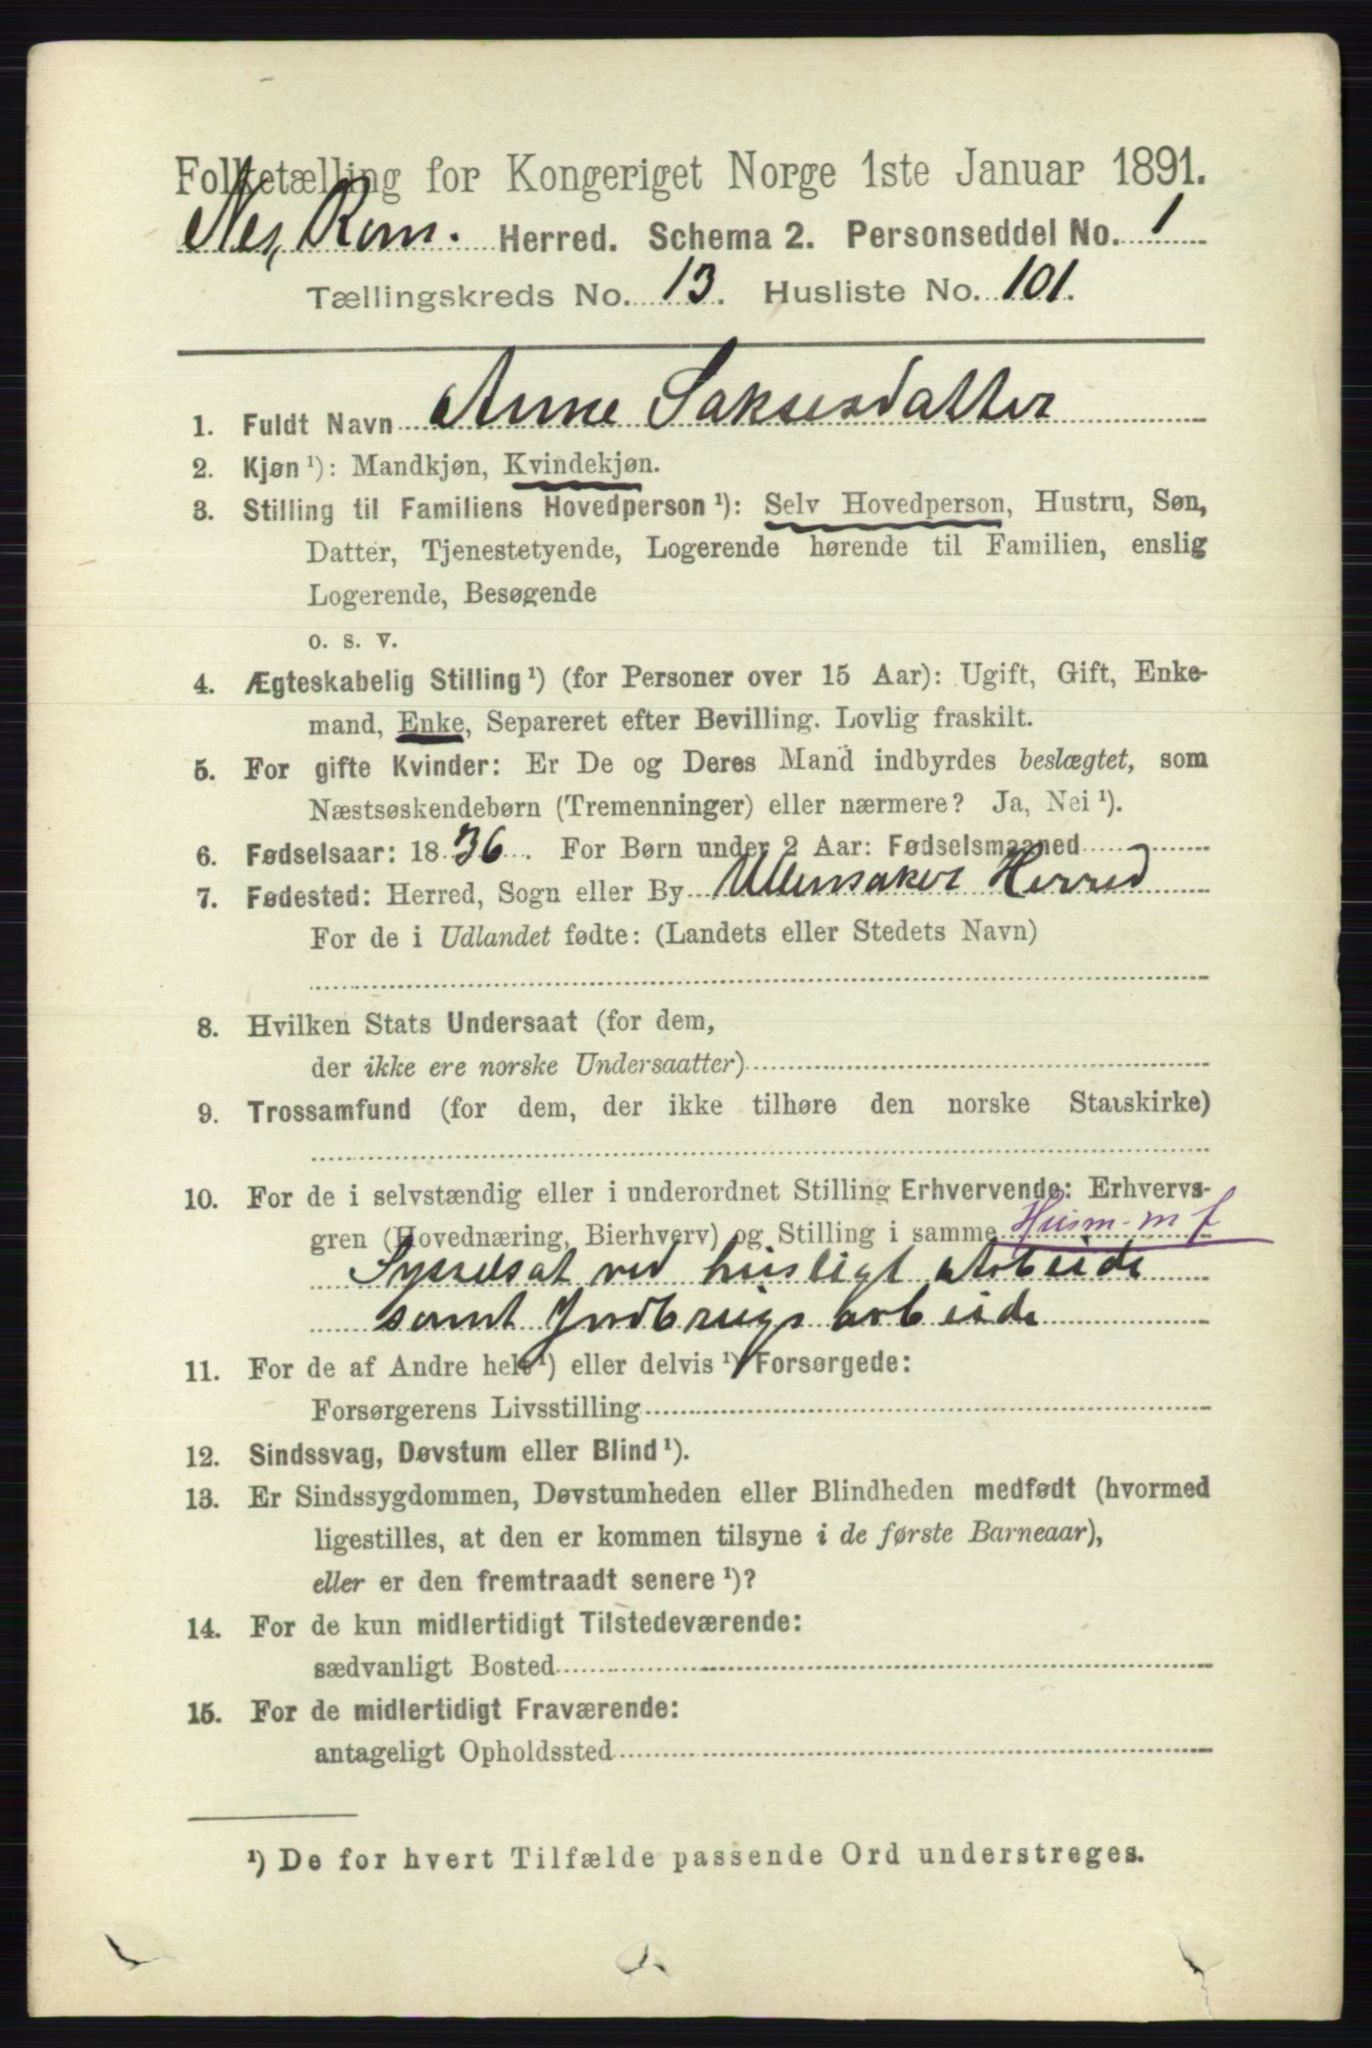 Folketælling for Kongeriget Norge 1ste Januar 1891.
Nes, Rom. Herred. Schema 2. Personseddel No. 1
Tællingskreds No. 13. Husliste No. 101.
1. Fuldt Navn Anne Saksesdatter
2. Kjøn ¹): Mandkjøn, Kvindekjøn.
3. Stilling til Familiens Hovedperson ¹): Selv Hovedperson, Hustru, Søn,
Datter, Tjenestetyende, Logerende hørende til Familien, enslig
Logerende, Besøgende
o. s. v.
4. Ægteskabelig Stilling ¹) (for Personer over 15 Aar): Ugift, Gift, Enke-
mand, Enke, Separeret efter Bevilling. Lovlig fraskilt.
5. For gifte Kvinder: Er De og Deres Mand indbyrdes beslægtet, som
Næstsøskendebørn (Tremenninger) eller nærmere? Ja, Nei ¹).
6. Fødselsaar: 1836. For Børn under 2 Aar: Fødselsmaaned
7. Fødested: Herred, Sogn eller By Ullensaker Herred
For de i Udlandet fødte: (Landets eller Stedets Navn)
8. Hvilken Stats Undersaat (for dem,
der ikke ere norske Undersaatter)
9. Trossamfund (for dem, der ikke tilhøre den norske Statskirke)
10. For de i selvstændig eller i underordnet Stilling Erhvervende: Erhvervs-
gren (Hovednæring, Bierhverv) og Stilling i samme Husm. m f
Sysselsat ved husligt Arbeide
samt Jordbrugsarbeide
11. For de af Andre helt ¹) eller delvis ¹) Forsørgede:
Forsørgerens Livsstilling
12. Sindssvag, Døvstum eller Blind ¹).
13. Er Sindssygdommen, Døvstumheden eller Blindheden medfødt (hvormed
ligestilles, at den er kommen tilsyne i de første Barneaar),
eller er den fremtraadt senere ¹)?
14. For de kun midlertidigt Tilstedeværende:
sædvanligt Bosted
15. For de midlertidigt Fraværende:
antageligt Opholdssted
¹) De for hvert Tilfælde passende Ord understreges.